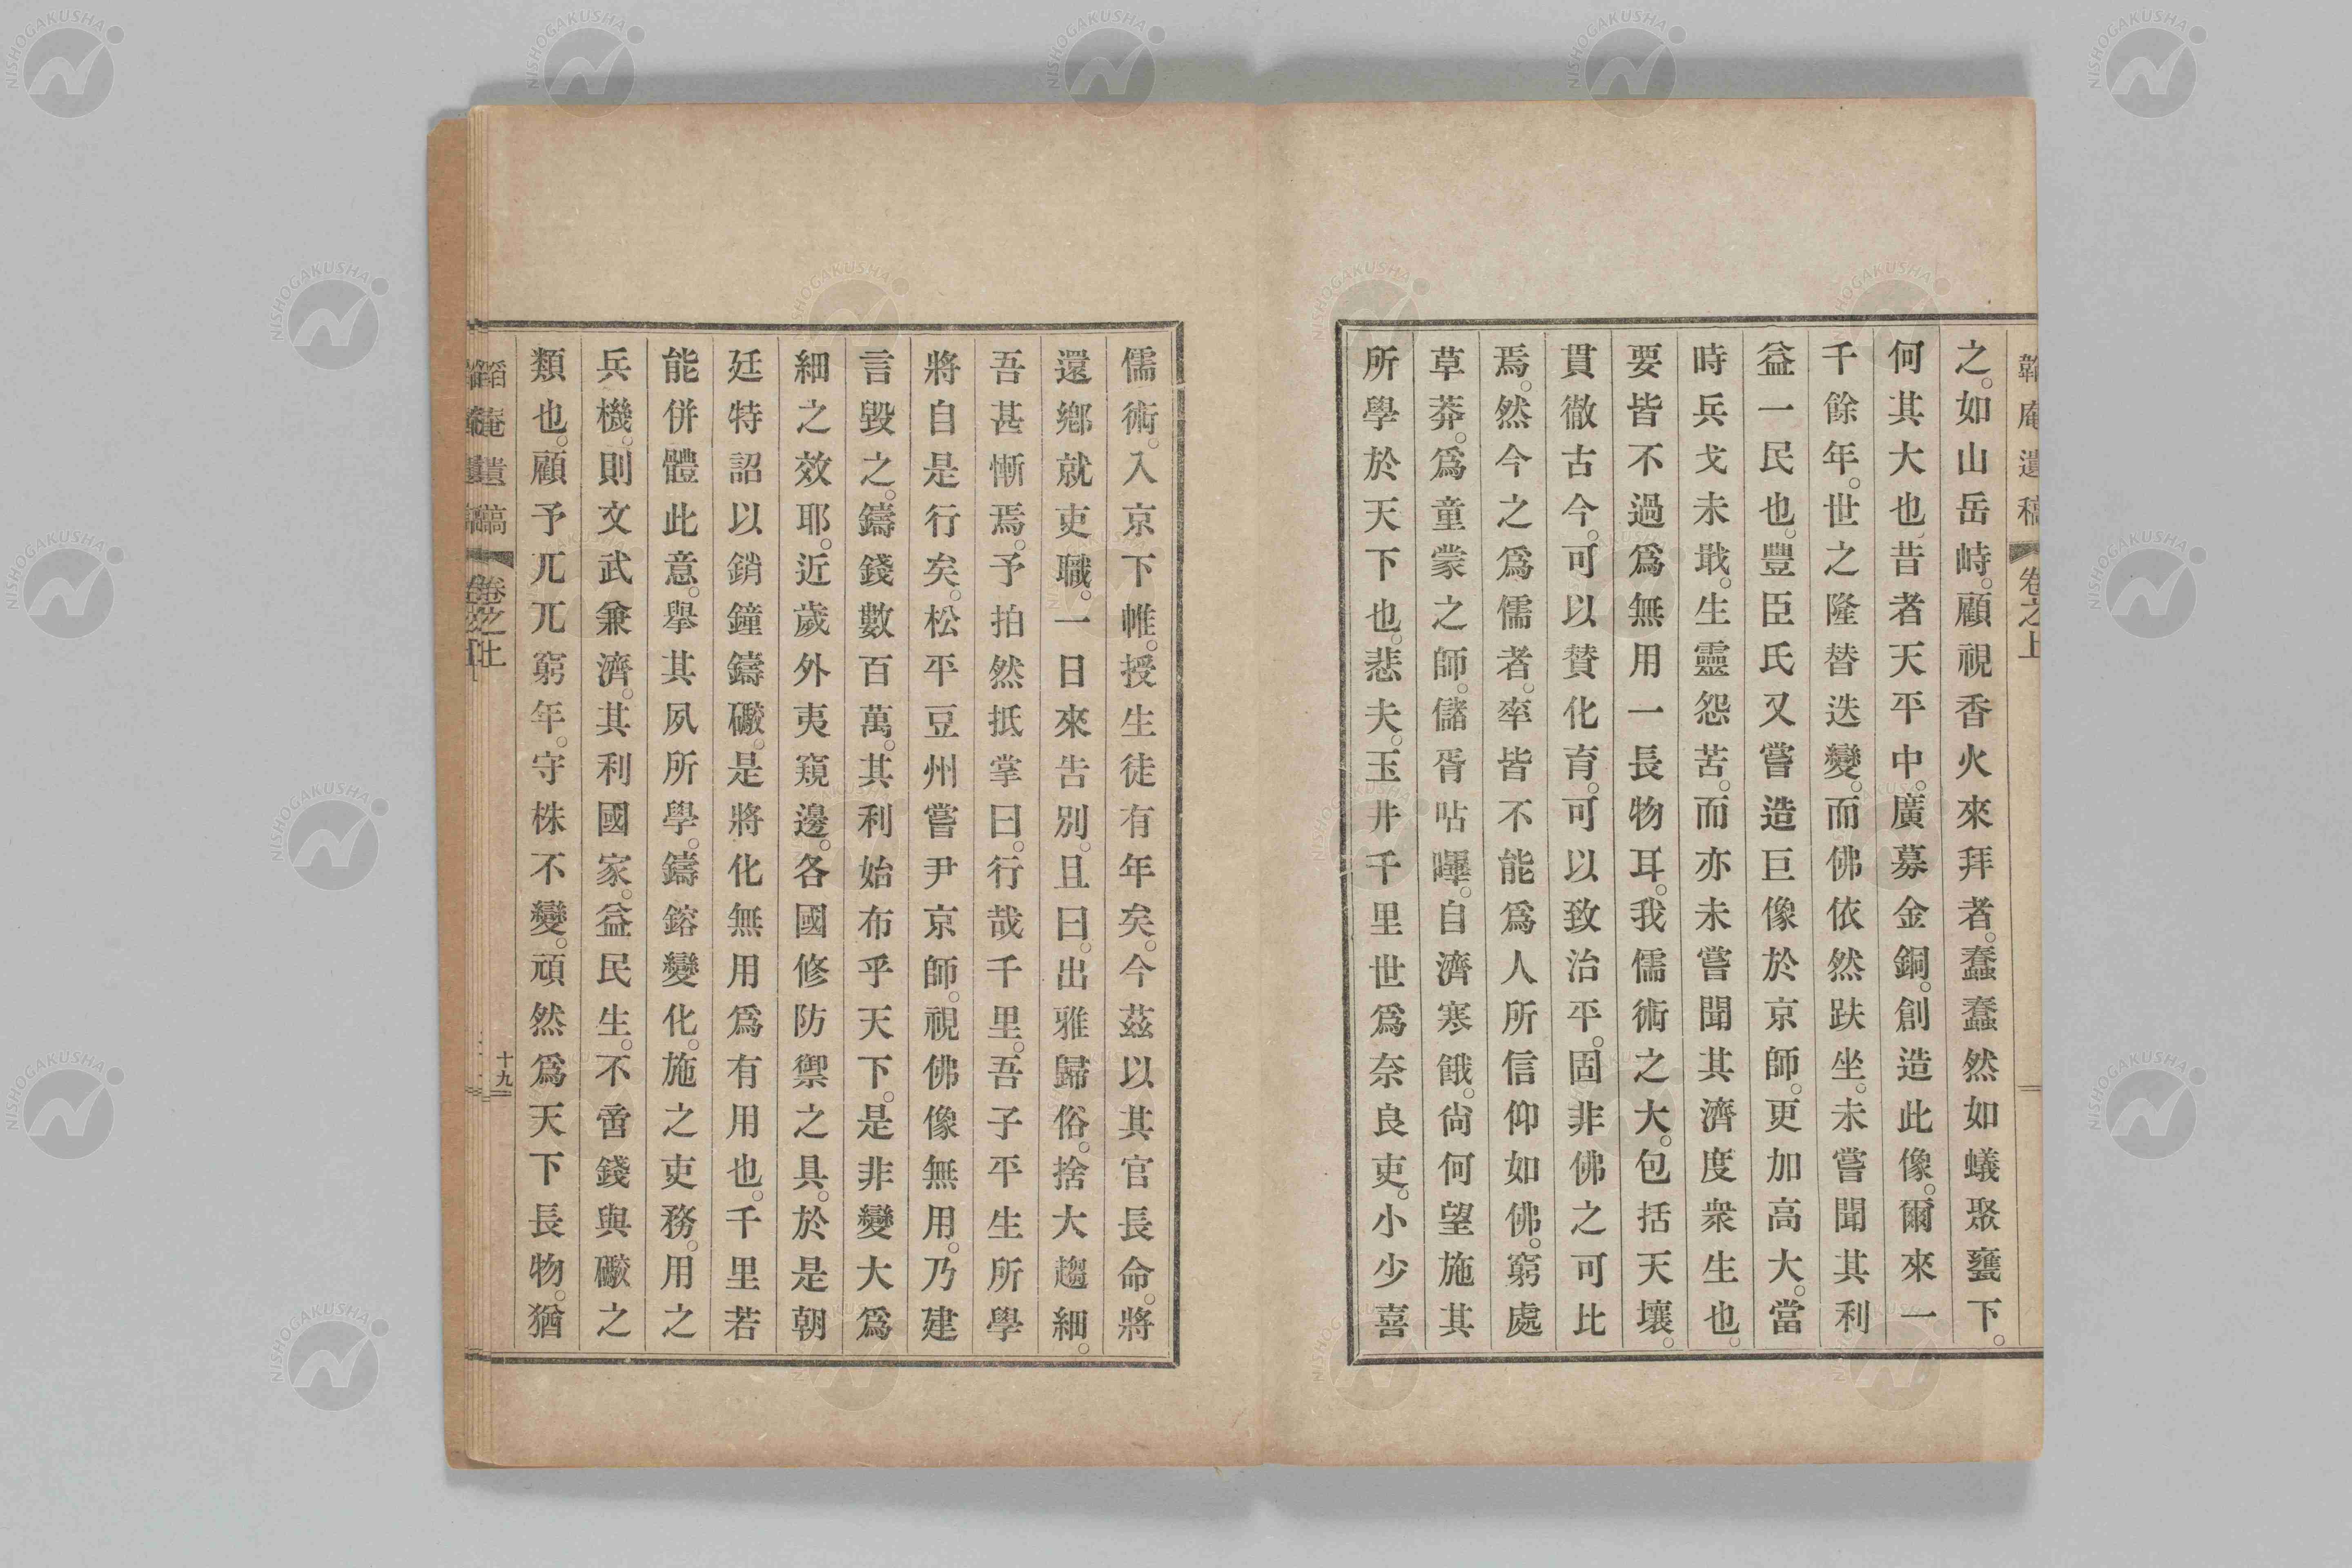 韜庵遺稿 卷之上
之。如山岳峙。顧視香火來拜者。蠢蠢然如蟻聚甕下。
何其大也、昔者天平中。廣募金銅。創造此像。爾來一
千餘年。世之隆替迭變。而佛依然趺坐。未嘗聞其利
益一民也。豐臣氏又嘗造巨像於京師。更加高大。當
時兵戈未戢。生靈怨苦。而亦未嘗聞其濟度衆生也。
要皆不過爲無用一長物耳。我儒術之大。包括天壤。
貫徹古今。可以賛化育。可以致治平。固非佛之可比
焉。然今之爲儒者。率皆不能爲人所信仰如佛。窮處
草莽。爲童蒙之師。儲胥呫嗶。自濟寒餓。尙何望施其
所學於天下也。悲夫。玉井千里世爲奈良吏。小少喜
儒術。入京下帷。授生徒有年矣。今茲以其官長命。將
還鄕就吏職。一日來告別。且曰。出雅歸俗。捨大趨細。
吾甚慚焉。予拍然抵掌曰。行哉千里。吾子平生所學
將自是行矣。松平豆州嘗尹京師。視佛像無用。乃建
言毀之。鑄錢數百萬。其利始布乎天下。是非變大爲
細之效耶。近歲外夷窺邊。各國修防禦之具。於是朝
廷特詔以銷鐘鑄礮。是將化無用爲有用也。千里若
能併體此意。擧其夙所學。鑄鎔變化。施之吏務。用之
兵機。則文武兼濟。其利國家。益民生。不啻錢與礮之
類也。顧予兀兀窮年。守株不變。頑然爲天下長物。猶
韜庵遺稿 卷之上 十九